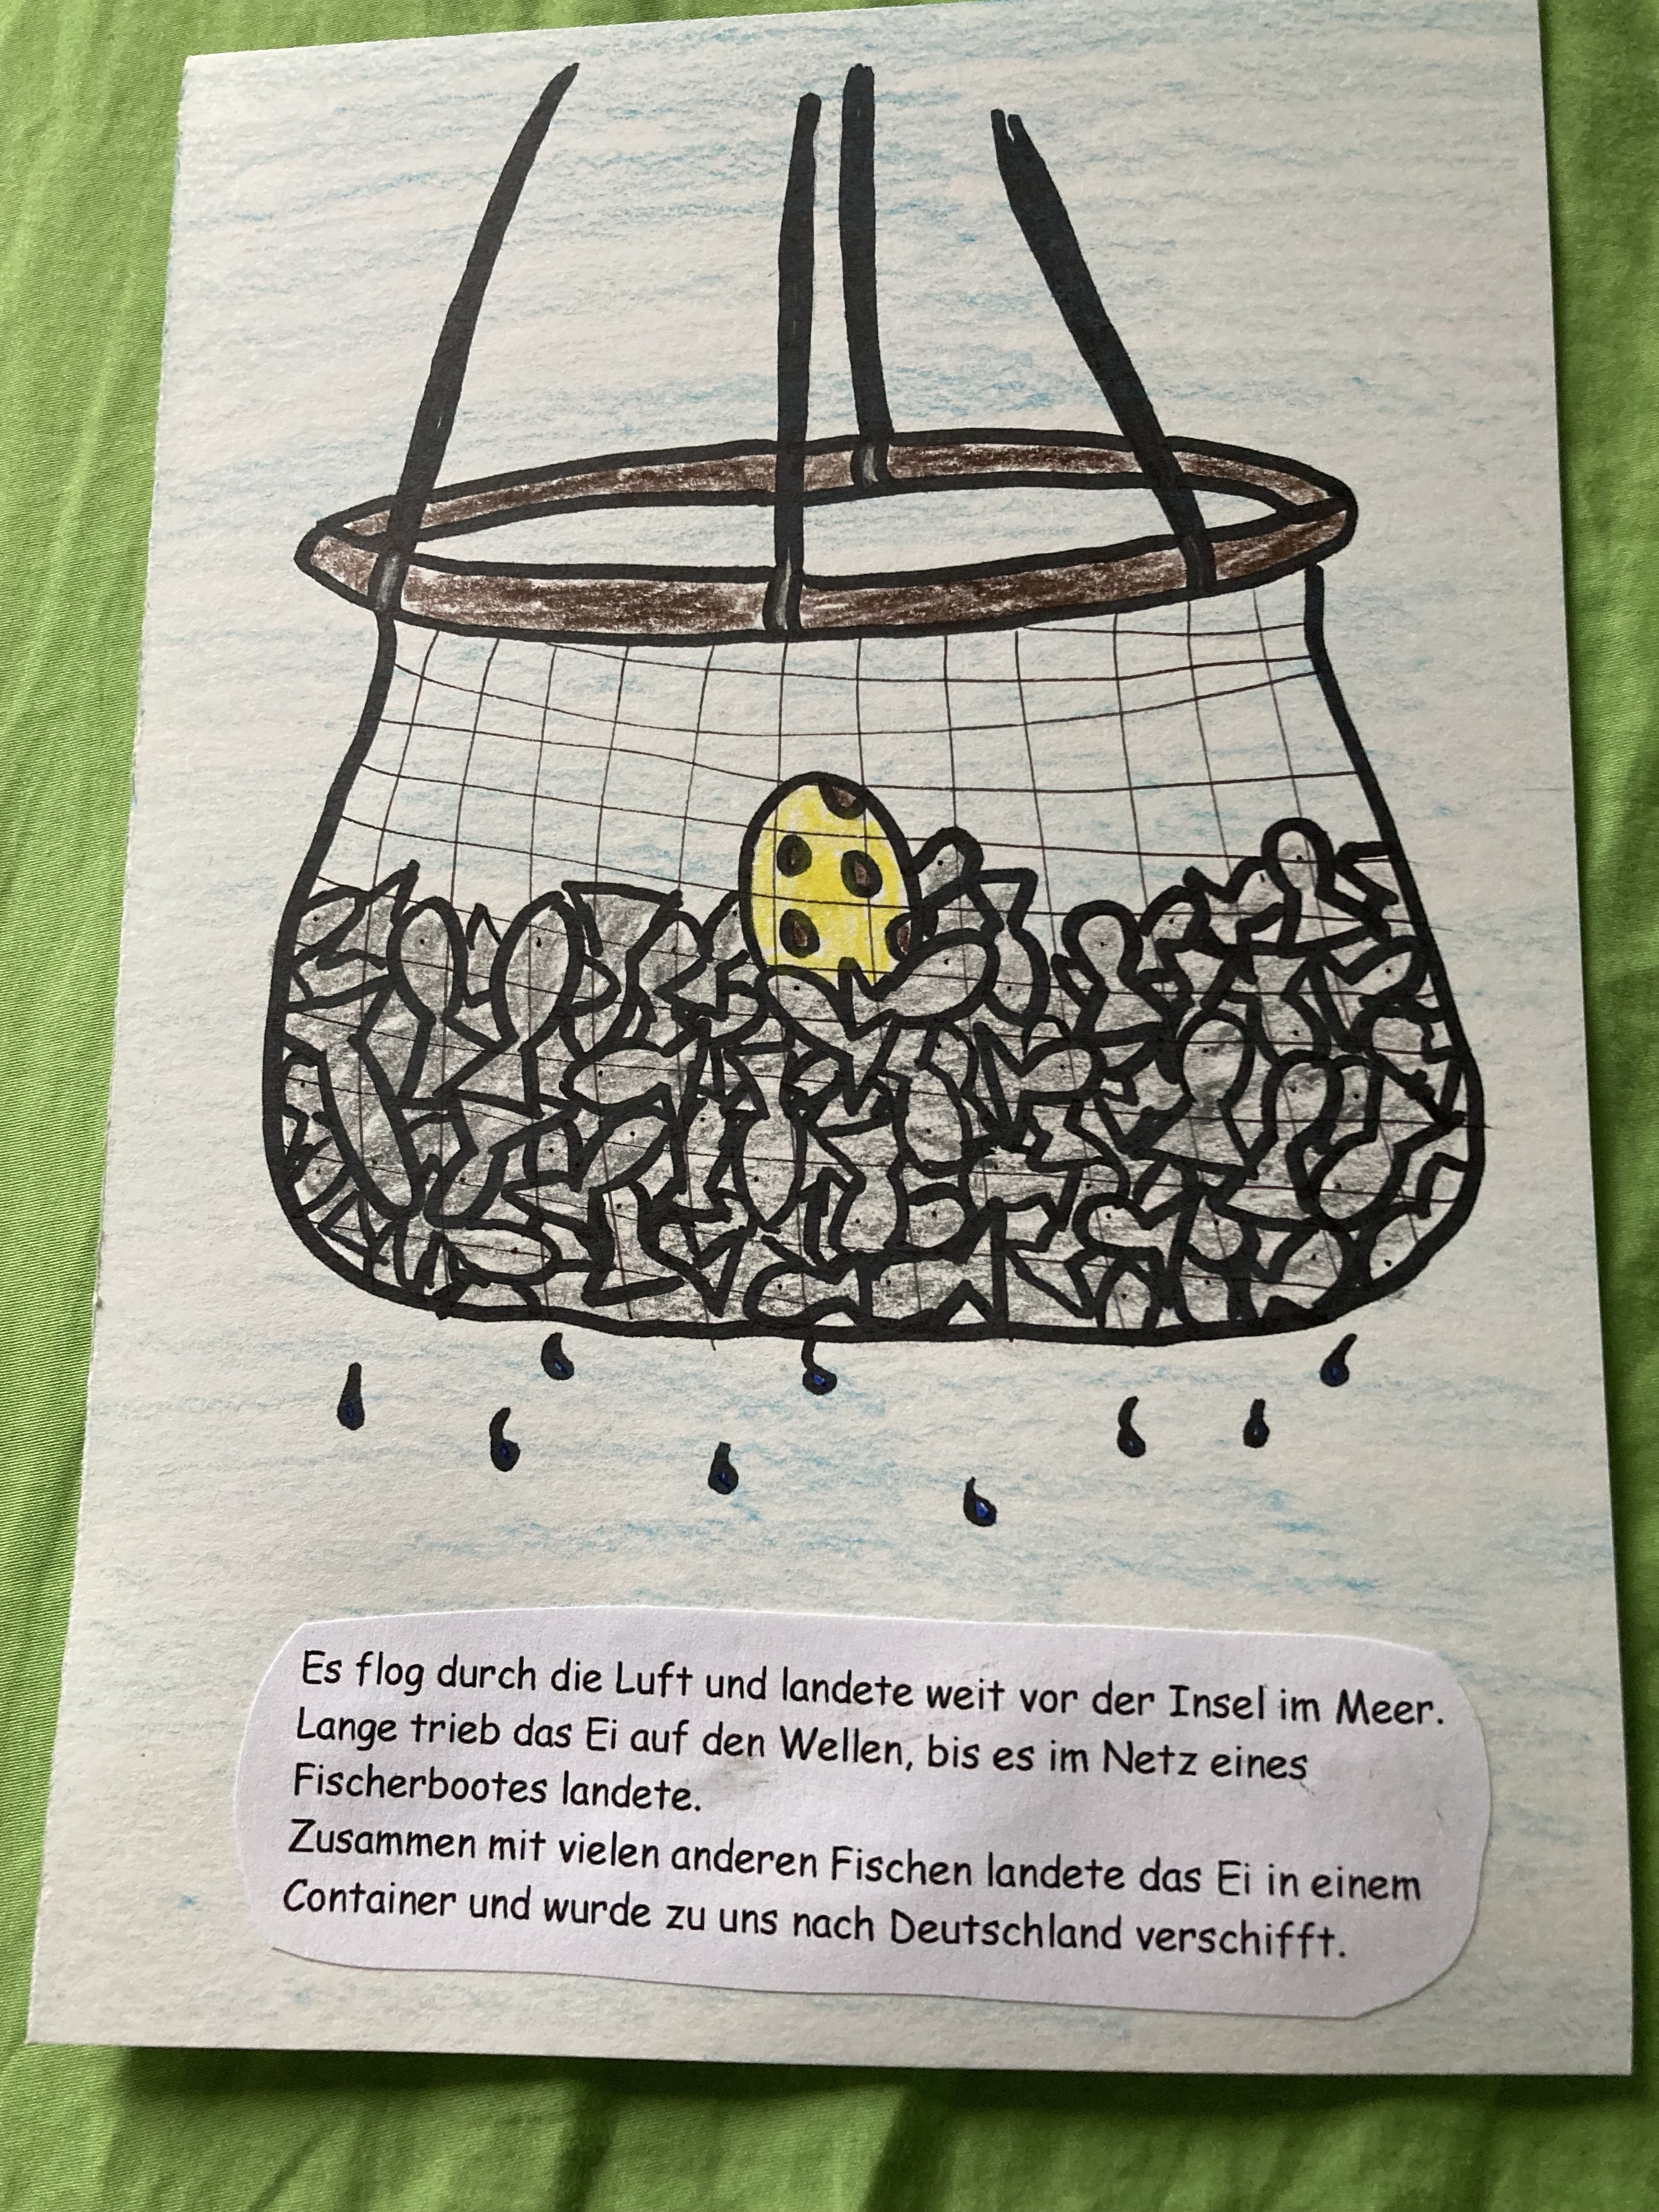 Es flog durch die Luft und landete weit vor der Insel im Meer.
Lange trieb das Ei auf den Wellen, bis es im Netz eines
Fischerbootes landete.
Zusammen mit vielen anderen Fischen landete das Ei in einem
Container und wurde zu uns nach Deutschland verschifft.